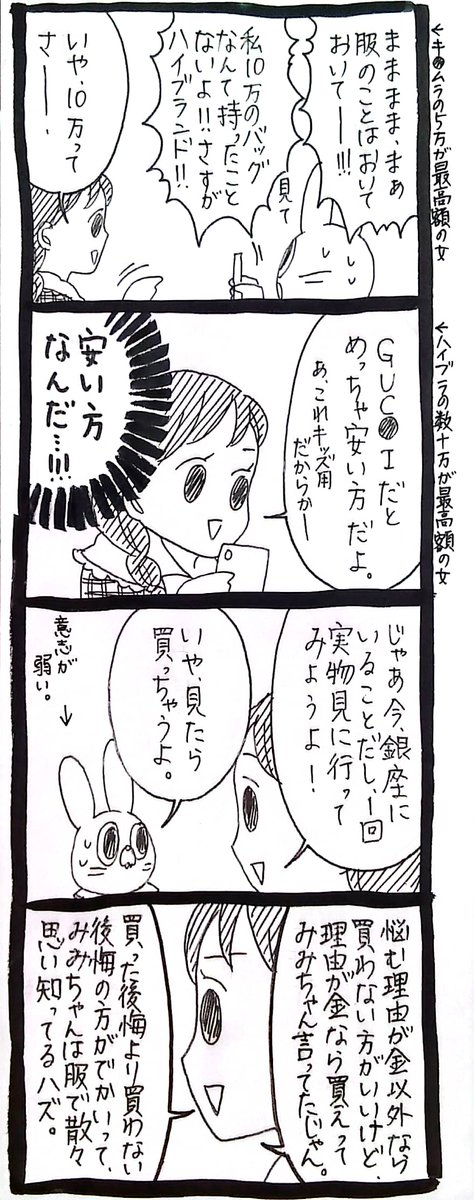 ←キ●ムラの5万が最高額の女
まままま、まぁ
服のことはおいて
おいてー!!!
見て
私10万のバッグ
なんて持ったこと
ないよ!!さすが
ハイブランド!!
いや、10万って
さー、
←ハイブラの数十万が最高額の女
GUC●Iだと
めっちゃ安い方だよ。
あ、これキッズ用
だからかー
安い方
なんだ…!!!
じゃあ今、銀座に
いることだし、1回
実物見に行って
みようよー!
いや、見たら
買っちゃうよ。
意志が
弱い。
→
悩む理由が金以外なら
買わない方がいいけど、
理由が金なら買えって
みみちゃん言ってたじゃん。
買った後悔より買わない
後悔の方がでかいって、
みみちゃんは服で散々
思い知ってるハズ。